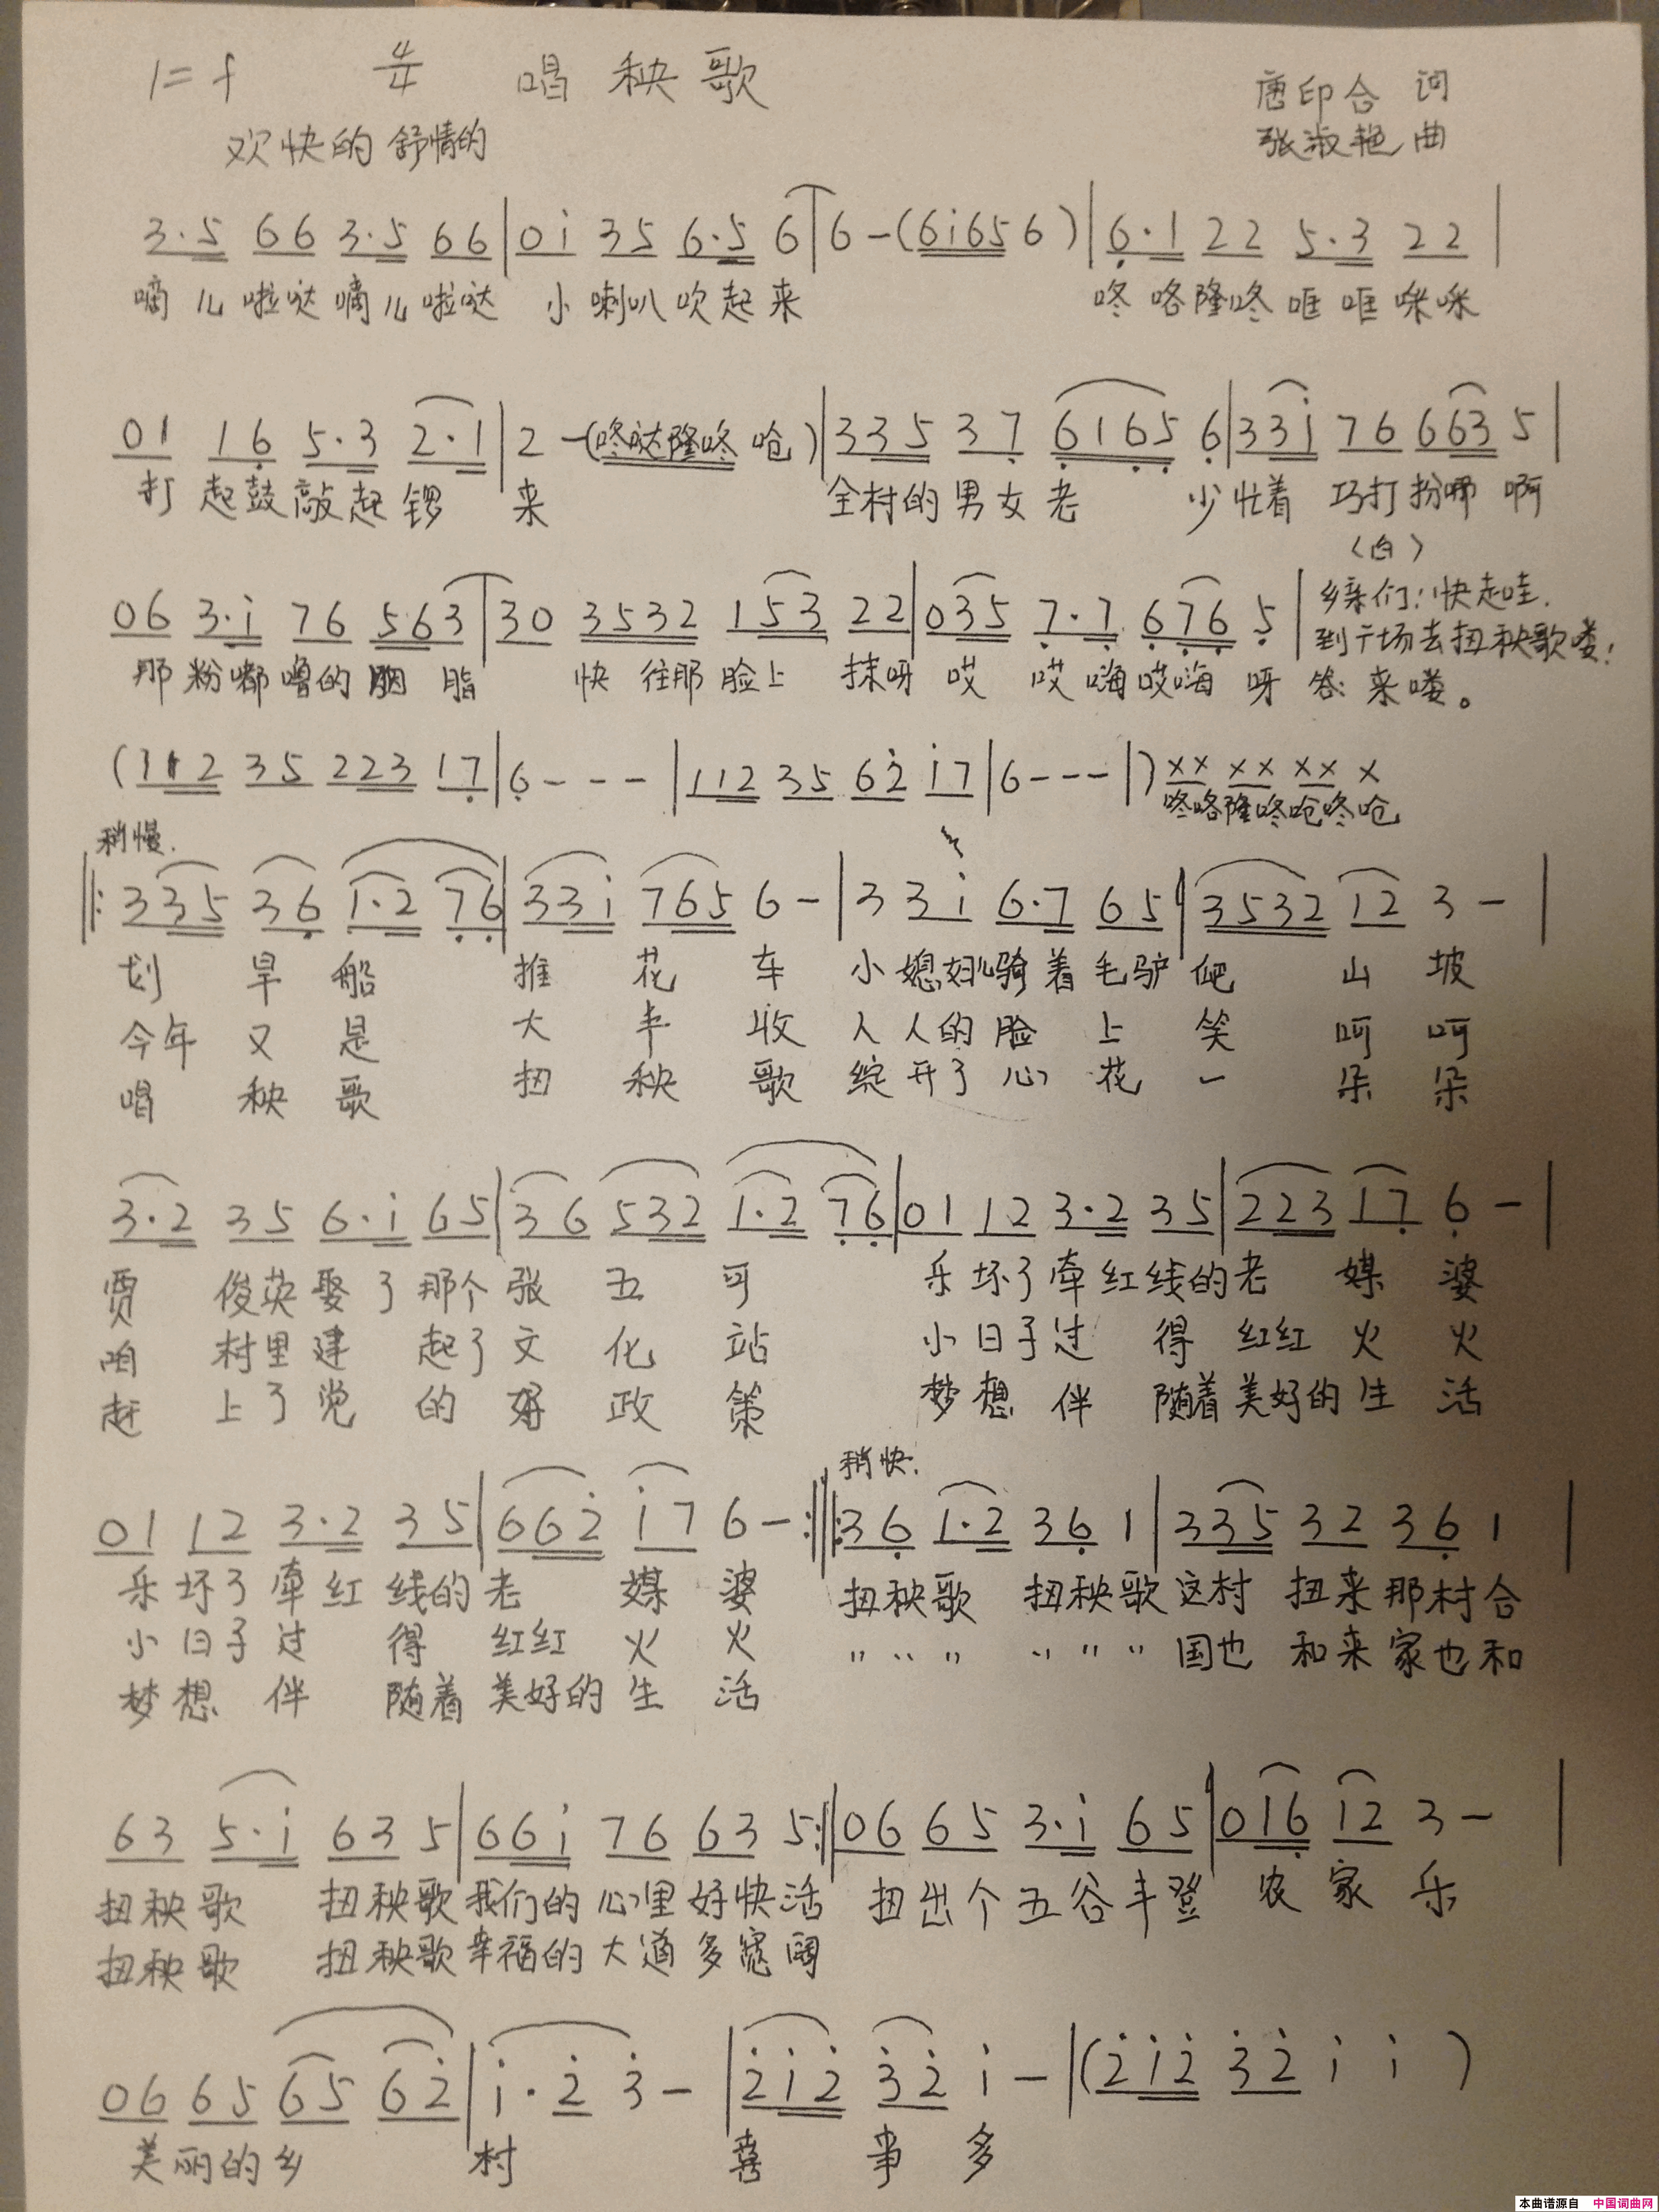 1=f 4/4 唱秧歌 唐印合 词
欢快的 舒情的 张淑艳 曲
3·5 66 3·5 66|0i 35 6·5 6|6-(6i65 6)|6·1 22 5·3 22|
嘀儿啦哒嘀儿啦哒 小喇叭吹起来 咚咯隆咚哐哐咪咪
01 16 5·3 2·1|2-(咚哒隆咚 呛)|335 37 6165 6|33i 76 663 5|
打起鼓敲起锣 来 全村的男女老 少忙着 巧打扮哪 啊
〈白〉
06 3·i 76 563|30 3532 153 22|035 7·7 676 5|乡亲们:快起哇.
到广场去扭秧歌喽!
那粉嘟噜的胭脂 快往那脸上 抹呀 哎 哎嗨哎嗨 呀 答:来喽。
(112 35 223 17|6---|112 35 62 i7|6---|)×× ×× ×× ×
咚咯隆咚呛咚呛
稍慢.
‖:335 36 1·2 76|33i 765 6-|3 3i 6·7 65|3532 12 3-|
划 旱 船 推 花 车 小媳妇儿骑着毛驴 爬 山 坡
今年 又 是 大 丰 收 人人的脸 上 笑 呵 呵
唱 秧 歌 扭 秧 歌 绽开了心 花 一 朵 朵
3·2 35 6·i 65|36 532 1·2 76|01 12 3·2 35|223 17 6-|
贾 俊英娶了那个 张 五 可 乐坏了牵红线的老 媒 婆
咱 村里建 起了文 化 站 小日子过 得 红红 火 火
赶 上了党 的 好 政 策 梦想 伴 随着美好的生 活
稍快.
01 12 3·2 35|662 i7 6-:‖:36 1·2 36 1|335 32 36 1|
乐坏了牵红 线的老 媒 婆 扭秧歌 扭秧歌这村 扭来那村合
小日子过 得 红红 火 火 〃〃〃 〃〃〃 国也 和来家也和
梦想 伴 随着 美好的 生 活
63 5·i 63 5|66i 76 63 5:‖06 65 3·i 65|016 12 3-|
扭秧歌 扭秧歌 我们的心里好快活 扭出个五谷丰登 农 家 乐
扭秧歌 扭秧歌幸福的大道多宽阔
06 65 65 62|i·2 3-|2i2 32 i-|(2i2 32 i i)
美丽的乡 村 喜 事 多
本曲谱源自 中国词曲网